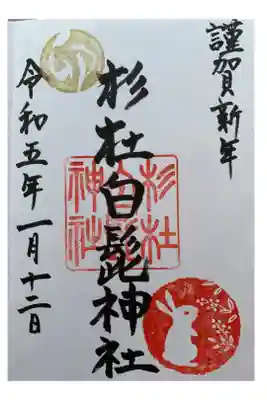 謹賀新年
杉杜白髭神社
杉杜
白髭
神社
令和五年一月十二日